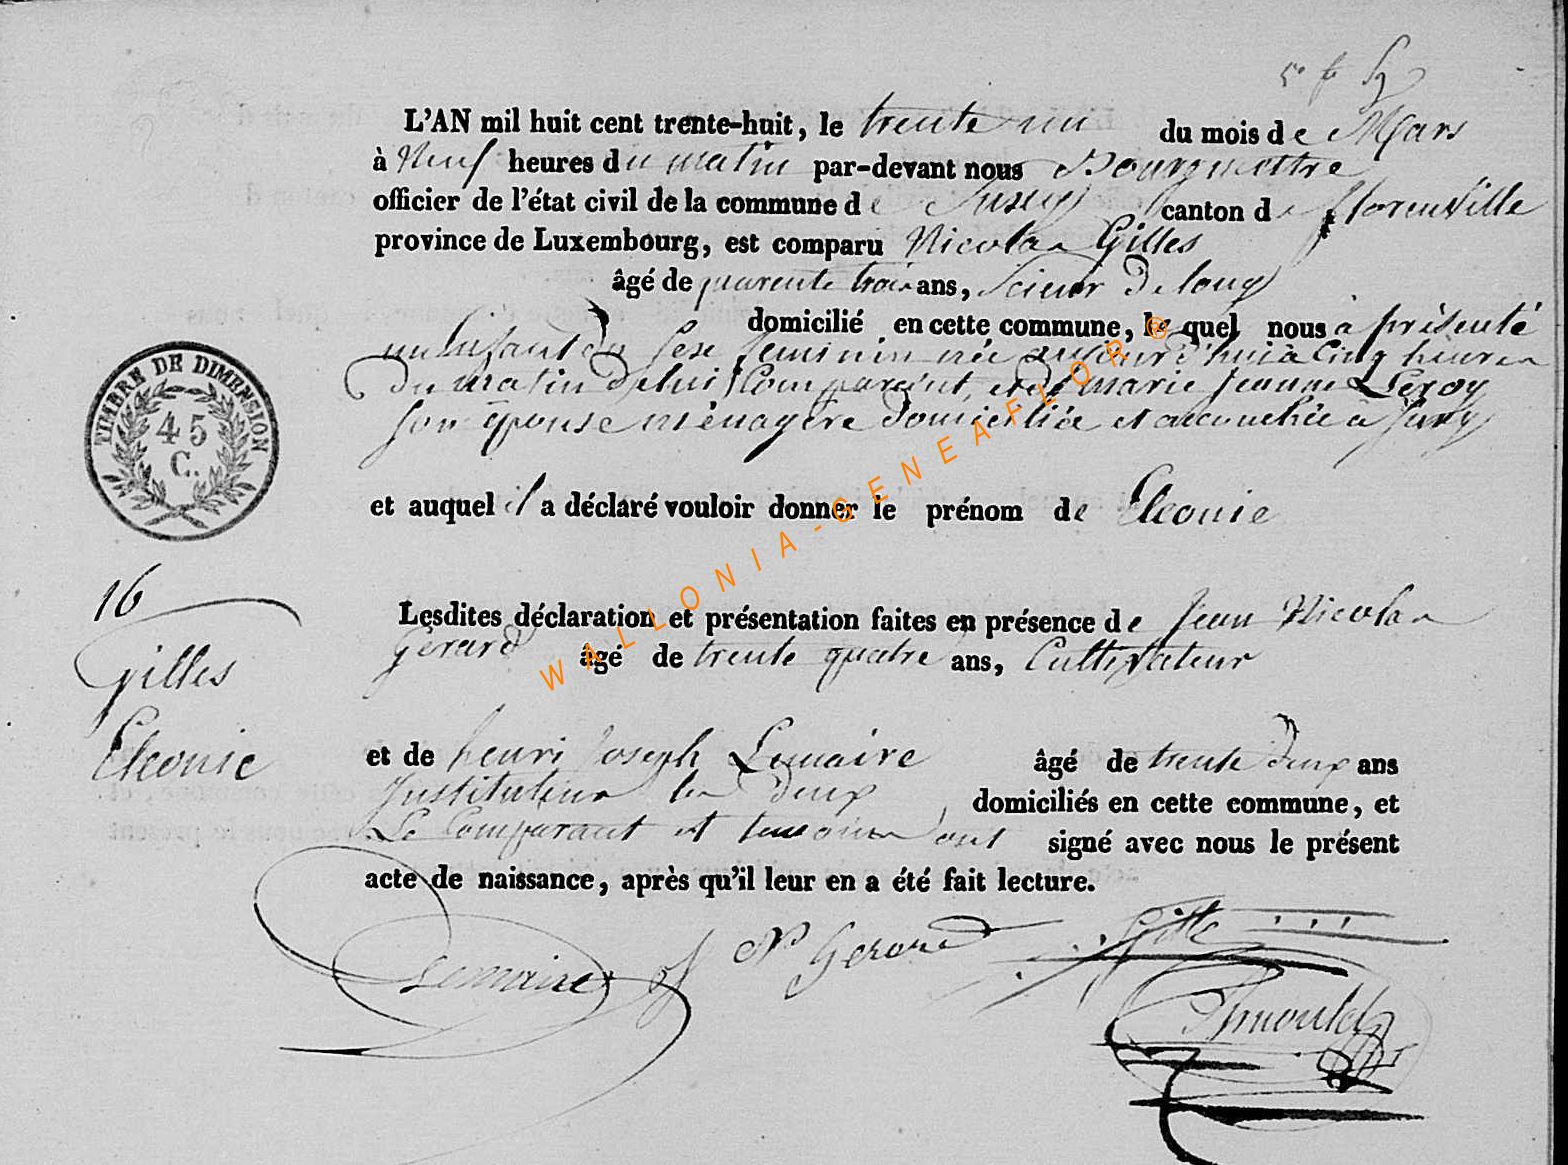 L'AN mil huit cent trente-huit, le trente un du mois de Mars
à Neuf heures du matin par-devant nous Bourgmettre
officier de l'état civil de la commune de canton de florenville
province de Luxembourg, est comparu Nicolas Gilles
âgé de quarente trois ans, Scieur De long
domicilié en cette commune, le quel nous à présenté
un Enfant du sexe feminin née aujour d'hui à Cinq heures
Du matin De lui Comparant, et de marie jeanne Leroy
son épouse ménagère domiciliée et accouchée a
et auquel il a déclaré vouloir donner le prénom de Eleonie
Lesdites déclaration et présentation faites en présence de Jean Nicolas
Gerard âgé de trente quatre ans, Cultivateur
et de henri Joseph Lemaire âgé de trente deux ans
Instituteur les deux domiciliés en cette commune, et
Le Comparant et temoins ont signé avec nous le présent
acte de naissance, après qu'il leur en a été fait lecture.
TIMBRE DE DIMENSION
45
C.
16
Gilles
Eleonie
Lemaire N Gerard Gille
Arnould
WALLONIA-GENEAFLOR®